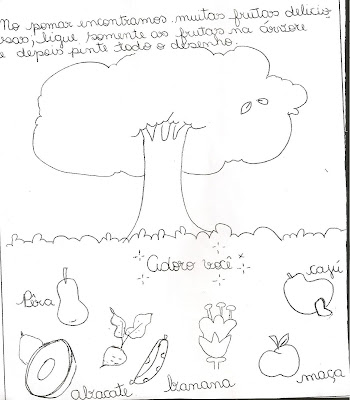 No pomar encontramos muitas frutas delicio
sas, ligue somente as frutas na árvore
e depois pinte todo o desenho.
Adoro você
cajú
Pêra
abacate
banana
maça